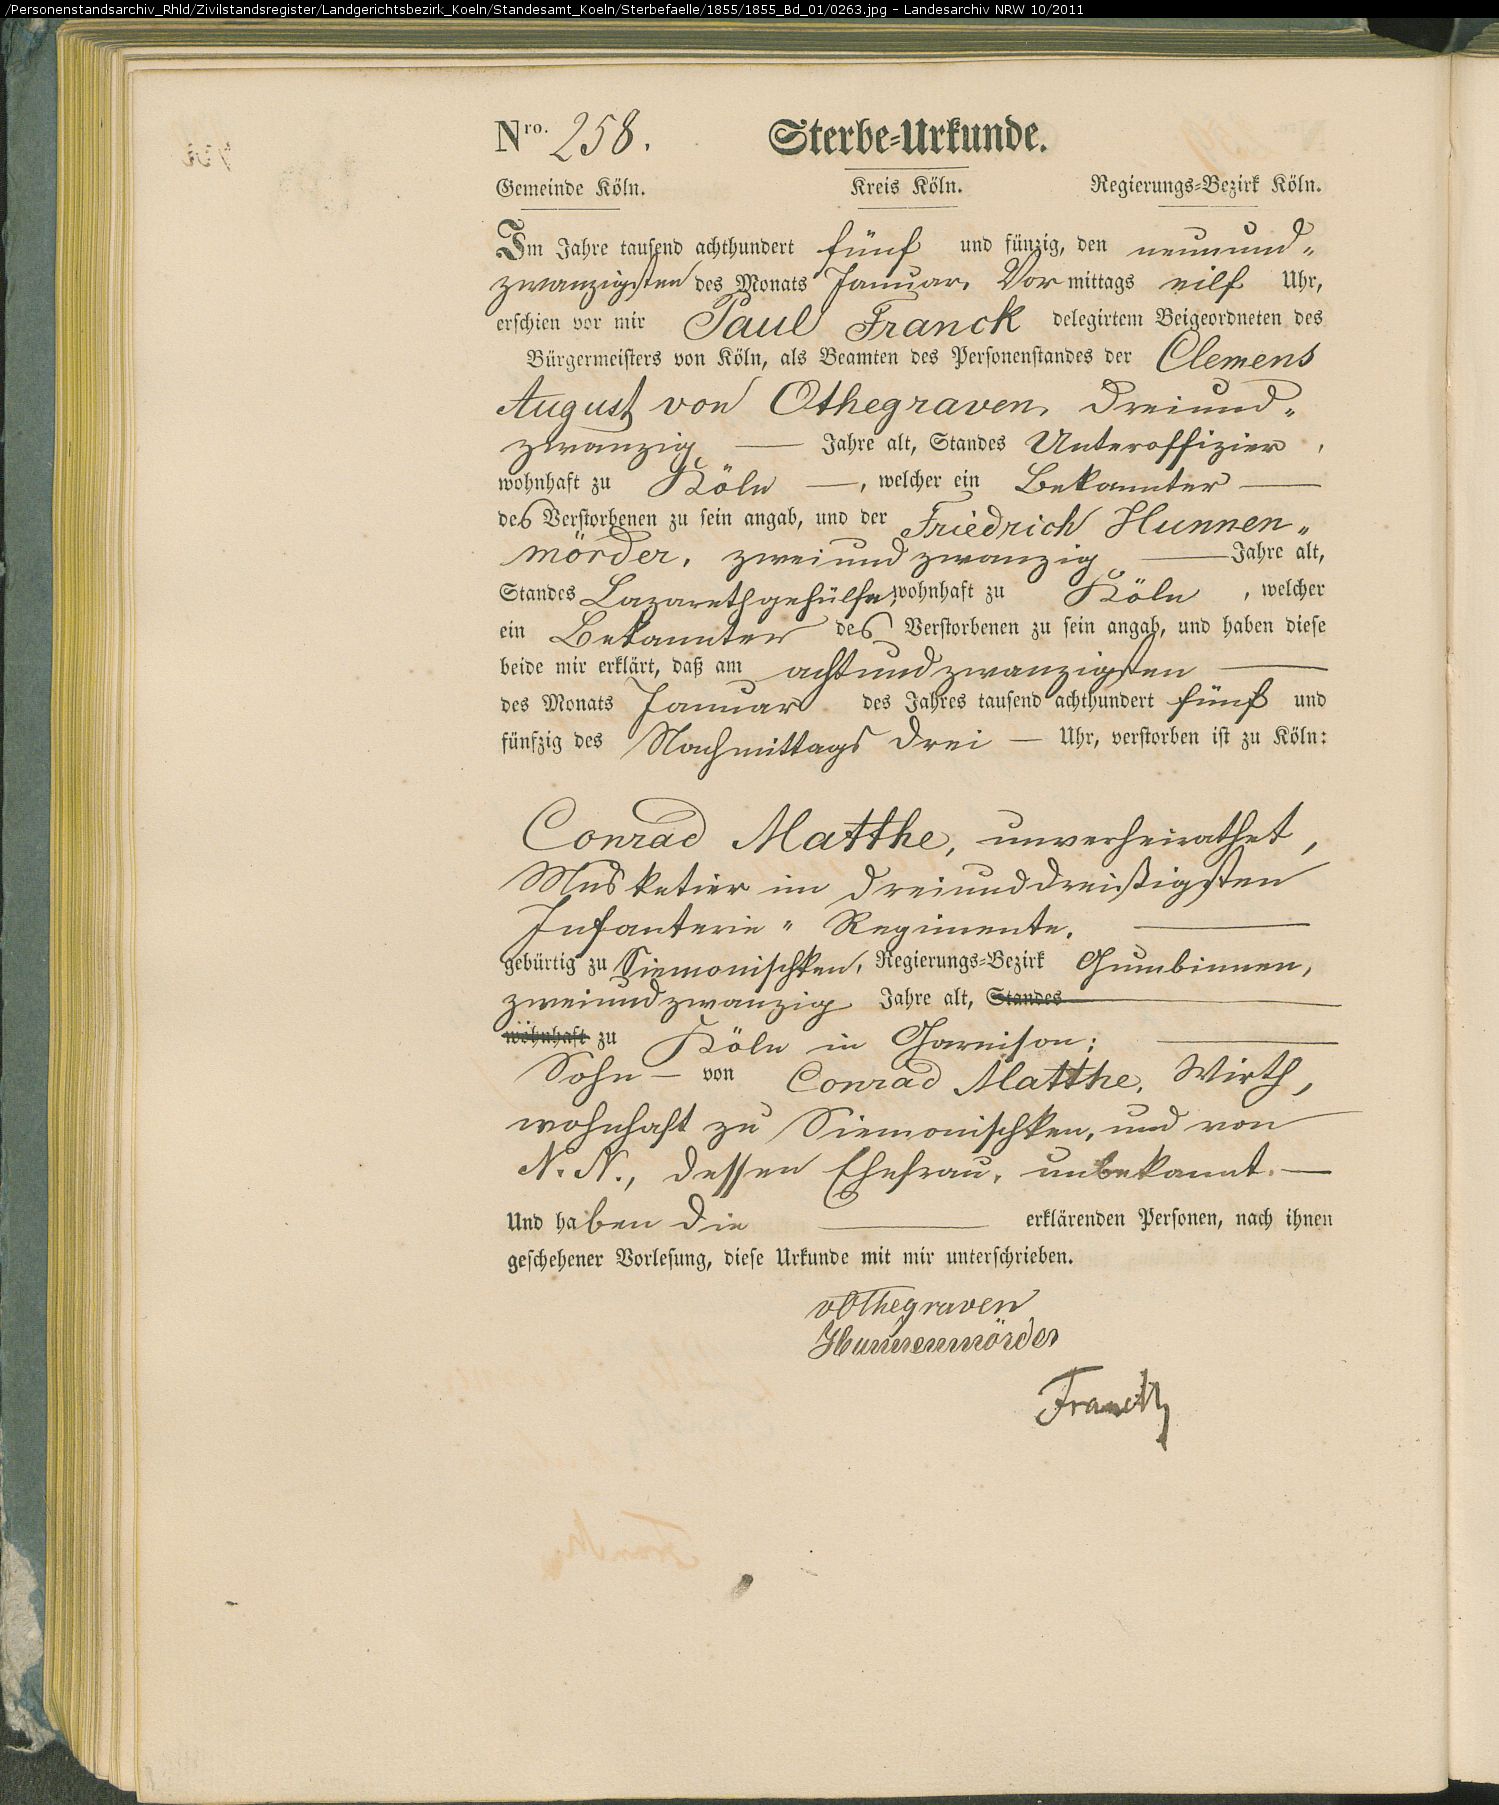 /Personenstandsarchiv_Rhld/Zivilstandsregister/Landgerichtsbezirk_Koeln/Standesamt_Koeln/Sterbefaelle/1855/1855_Bd_01/0263.jpg - Landesarchiv NRW 10/2011
Nro. 258. Sterbe-Urkunde.
Gemeinde Köln. Kreis Köln. Regierungs-Bezirk Köln.
Im Jahre tausend achthundert fünf und fünzig, den neunund-
zwanzigsten des Monats Januar, Vormittags eilf Uhr,
erschien vor mir Paul Franck delegirtem Beigeordneten des
Bürgermeisters von Köln, als Beamten des Personenstandes der Clemens
August von Othegraven, dreiund-
zwanzig — Jahre alt, Standes Unteroffizier,
wohnhaft zu Köln —, welcher ein Bekannter —
des Verstorbenen zu sein angab, und der Friedrich Hunnen-
mörder, zweiundzwanzig — Jahre alt,
Standes Lazarethgehülfe, wohnhaft zu Köln, welcher
ein Bekannter des Verstorbenen zu sein angab, und haben diese
beide mir erklärt, daß am achtundzwanzigsten —
des Monats Januar des Jahres tausend achthundert fünf und
fünfzig des Nachmittags drei — Uhr, verstorben ist zu Köln:
Conrad Matthe, unverheirathet,
Musketier im dreiunddreißigsten
Infanterie-Regimente. —
gebürtig zu Siemonischken, Regierungs-Bezirk Gumbinnen,
zweiundzwanzig Jahre alt, Standes —
wohnhaft zu Köln in Garnison; —
Sohn — von Conrad Matthe, Wirth,
wohnhaft zu Siemonischken, und von
N. N., dessen Ehefrau, unbekannt. —
Und haben die — erklärenden Personen, nach ihnen
geschehener Vorlesung, diese Urkunde mit mir unterschrieben.
vOthegraven
Hunnenmörder
Franck